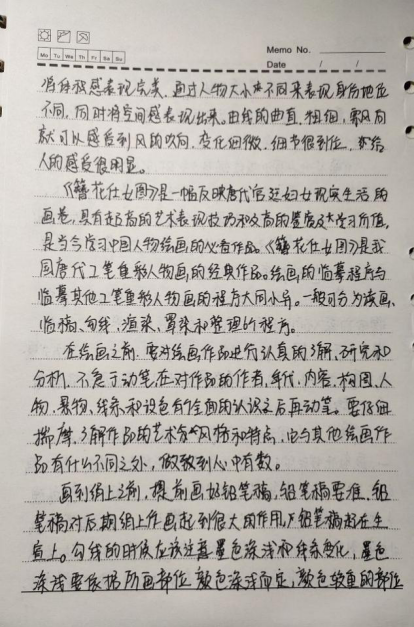 Memo No.
Mo Tu We Th Fr Sa Su
Date / /
将体积感表现完美。通过人物大小不同来表现身份地位
不同，同时将空间感表现出来。曲线的曲直、粗细，乘风向
就可以感受到风的吹向，变化细微，细节很到位，给
人的感受很明显。
《簪花仕女图》是一幅反映唐代宫廷妇女现实生活的
画卷，具有超高的艺术表现技巧和及高的鉴赏及学习价值，
是当今学习中国人物绘画的必看作品。《簪花仕女图》是我
国唐代工笔重彩人物画的经典作品。绘画的临摹程序与
临摹其他工笔重彩人物画的程序大同小异。一般可分为读画、
临稿、勾线、渲染、罩染和整理的程序。
在绘画之前，要对绘画作品进行认真的了解、研究和
分析，不急于动笔在对作品的作者、年代、内容、构图、人
物、景物、线条和设色有全面的认识之后再动笔。要仔细
揣摩，了解作品的艺术风格和特点，也与其他绘画作
品有什么不同之处，做到心中有数。
画到绢上之前，提前画好铅笔稿，铅笔稿要准，铅
笔稿对后期绢上作画起到很大的作用，铅笔稿起在生
宣上。勾线的时候应该注意墨色深浅和线条变化，墨色
深浅要依据所画部位颜色深浅而定，颜色较重的部位